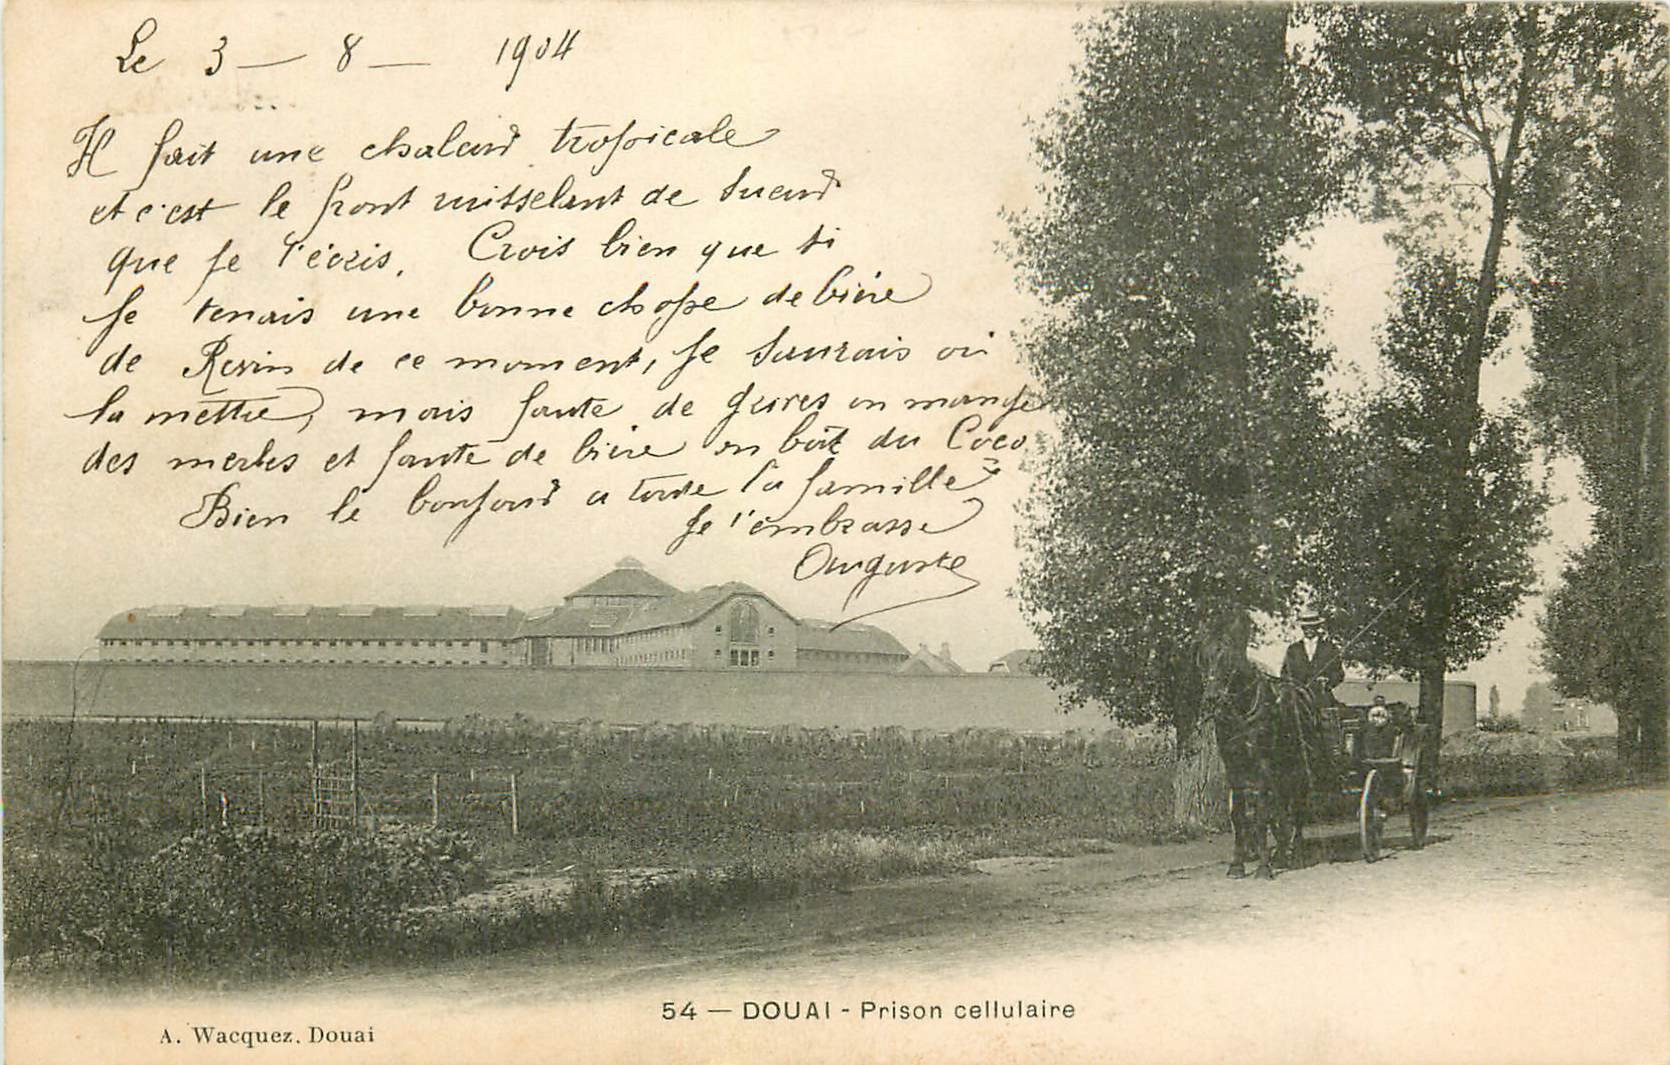 Le 3 — 8 — 1904
Il fait une chaleur tropicale
et c'est le front ruisselant de sueur
que je t'écris. Crois bien que si
je tenais une bonne chope de bière
de Revin de ce moment, je saurais où
la mettre, mais faute de grives on mange
des merles et faute de bière on boit du Coco
Bien le bonjour a toute la famille
Je t'embrasse
Auguste
54 — DOUAI - Prison cellulaire
A. Wacquez. Douai